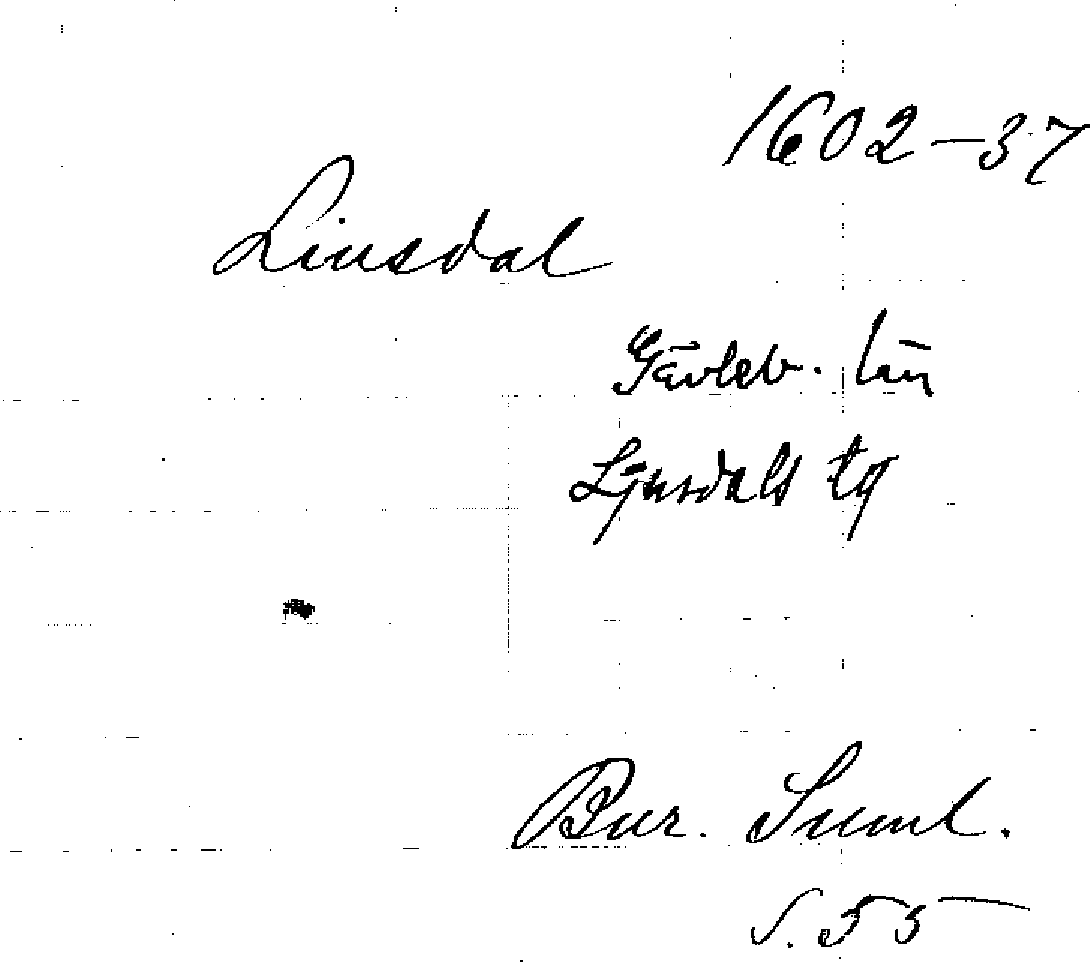 1602-37
Liusdal
Gävleb. län
Ljusdals tg
Bur. Suml.
S. 55